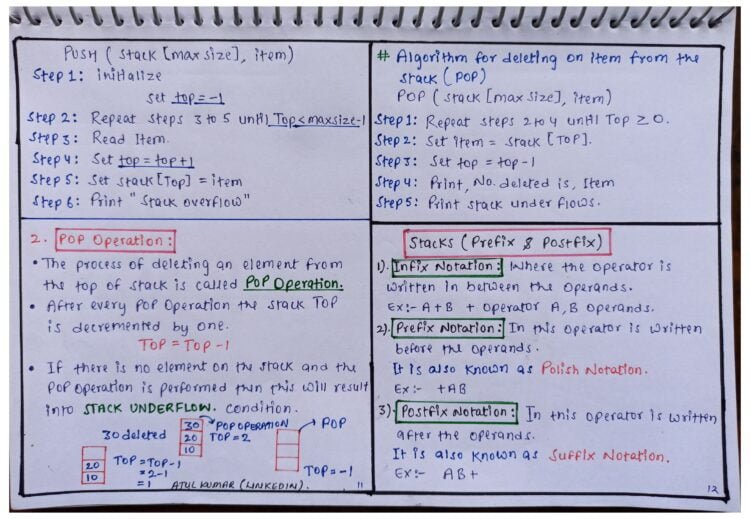 PUSH (stack [max size], item)
Step 1: initialize
set top = -1
Step 2: Repeat steps 3 to 5 until Top < maxsize-1
Step 3: Read Item.
Step 4: Set top = top+1
Step 5: Set stack [Top] = item
Step 6: Print "stack overflow"
2. POP Operation:
• The process of deleting an element from
the top of stack is called POP Operation.
• After every POP Operation the stack TOP
is decremented by one.
TOP = TOP - 1
• If there is no element on the stack and the
POP operation is performed then this will result
into STACK UNDERFLOW. condition.
30 deleted
30
20
10
POP OPERATION
TOP = 2
POP
20
10
TOP = TOP - 1
= 2-1
= 1
TOP = -1
ATUL KUMAR (LINKEDIN).
11
# Algorithm for deleting on item from the
stack (POP)
POP (stack [max size], item)
Step 1: Repeat steps 2 to 4 until Top ≥ 0.
Step 2: Set item = stack [TOP].
Step 3: Set top = top-1
Step 4: Print, No. deleted is, Item
Step 5: Print stack under flows.
Stacks (Prefix & Postfix)
1). Infix Notation: Where the operator is
written in between the operands.
Ex:- A+B + operator A, B operands.
2). Prefix Notation: In this operator is written
before the operands.
It is also known as Polish Notation.
Ex:- +AB
3). Postfix Notation: In this operator is written
after the operands.
It is also known as Suffix Notation.
Ex:- AB+
12